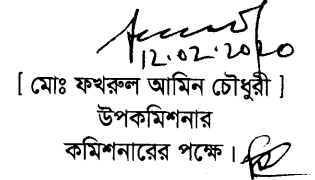 12.02.2020
[ মোঃ ফখরুল আমিন চৌধুরী ]
উপকমিশনার
কমিশনারের পক্ষে।